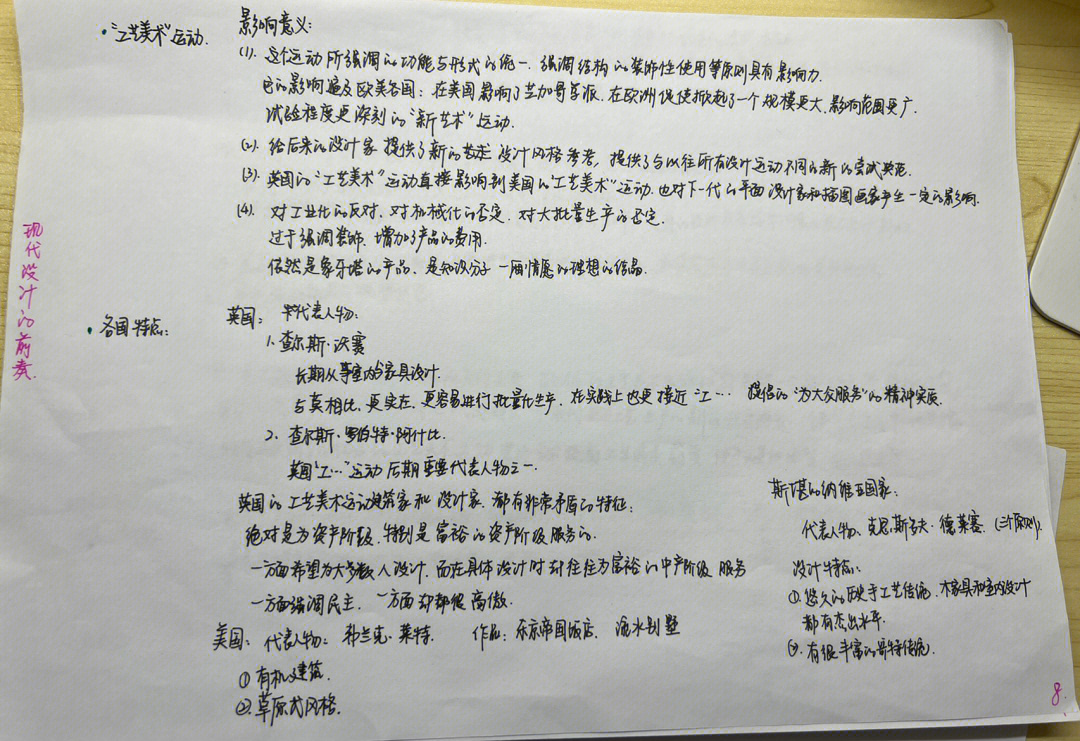 现代设计的前奏
·"工艺美术"运动.
影响意义:
(1). 这个运动所强调的功能与形式的统一. 强调结构的装饰性使用等原则具有影响力.
它的影响遍及欧美各国: 在美国影响了芝加哥学派. 在欧洲促使掀起了一个规模更大. 影响范围更广.
试验程度更深刻的"新艺术"运动.
(2). 给后来的设计家提供了新的设计风格参考, 提供了与以往所有设计运动不同的新的尝试典范.
(3). 英国的"工艺美术"运动直接影响到美国的"工艺美术"运动. 也对下一代的平面设计家和插图画家产生一定的影响.
(4). 对工业化的反对. 对机械化的否定. 对大批量生产的否定.
过于强调装饰. 增加了产品的费用.
依然是象牙塔的产品. 是知识分子一厢情愿的理想的结晶.
·各国特点:
英国: 代表人物:
1. 查尔斯·沃赛
长期从事室内与家具设计.
与莫相比. 更实在. 更容易进行批量化生产. 在实践上也更接近"工… 提倡的"为大众服务"的精神实质.
2. 查尔斯·罗伯特·阿什比.
英国"工…"运动后期重要代表人物之一.
英国的工艺美术运动建筑家和设计家. 都有非常矛盾的特征:
绝对是为资产阶级. 特别是富裕的资产阶级服务的.
一方面希望为大多数人设计. 而在具体设计时却往往为富裕的中产阶级服务
一方面强调民主. 一方面却都很高傲.
美国: 代表人物: 弗兰克·莱特. 作品: 东京帝国饭店. 流水别墅
①有机建筑.
②草原式风格.
斯堪的纳维亚国家:
代表人物. 克里斯多夫·德莱赛. (三个原则).
设计特点:
①. 悠久的历史手工艺传统. 木家具和室内设计
都有杰出水平.
②. 有很丰富的哥特传统.
8.